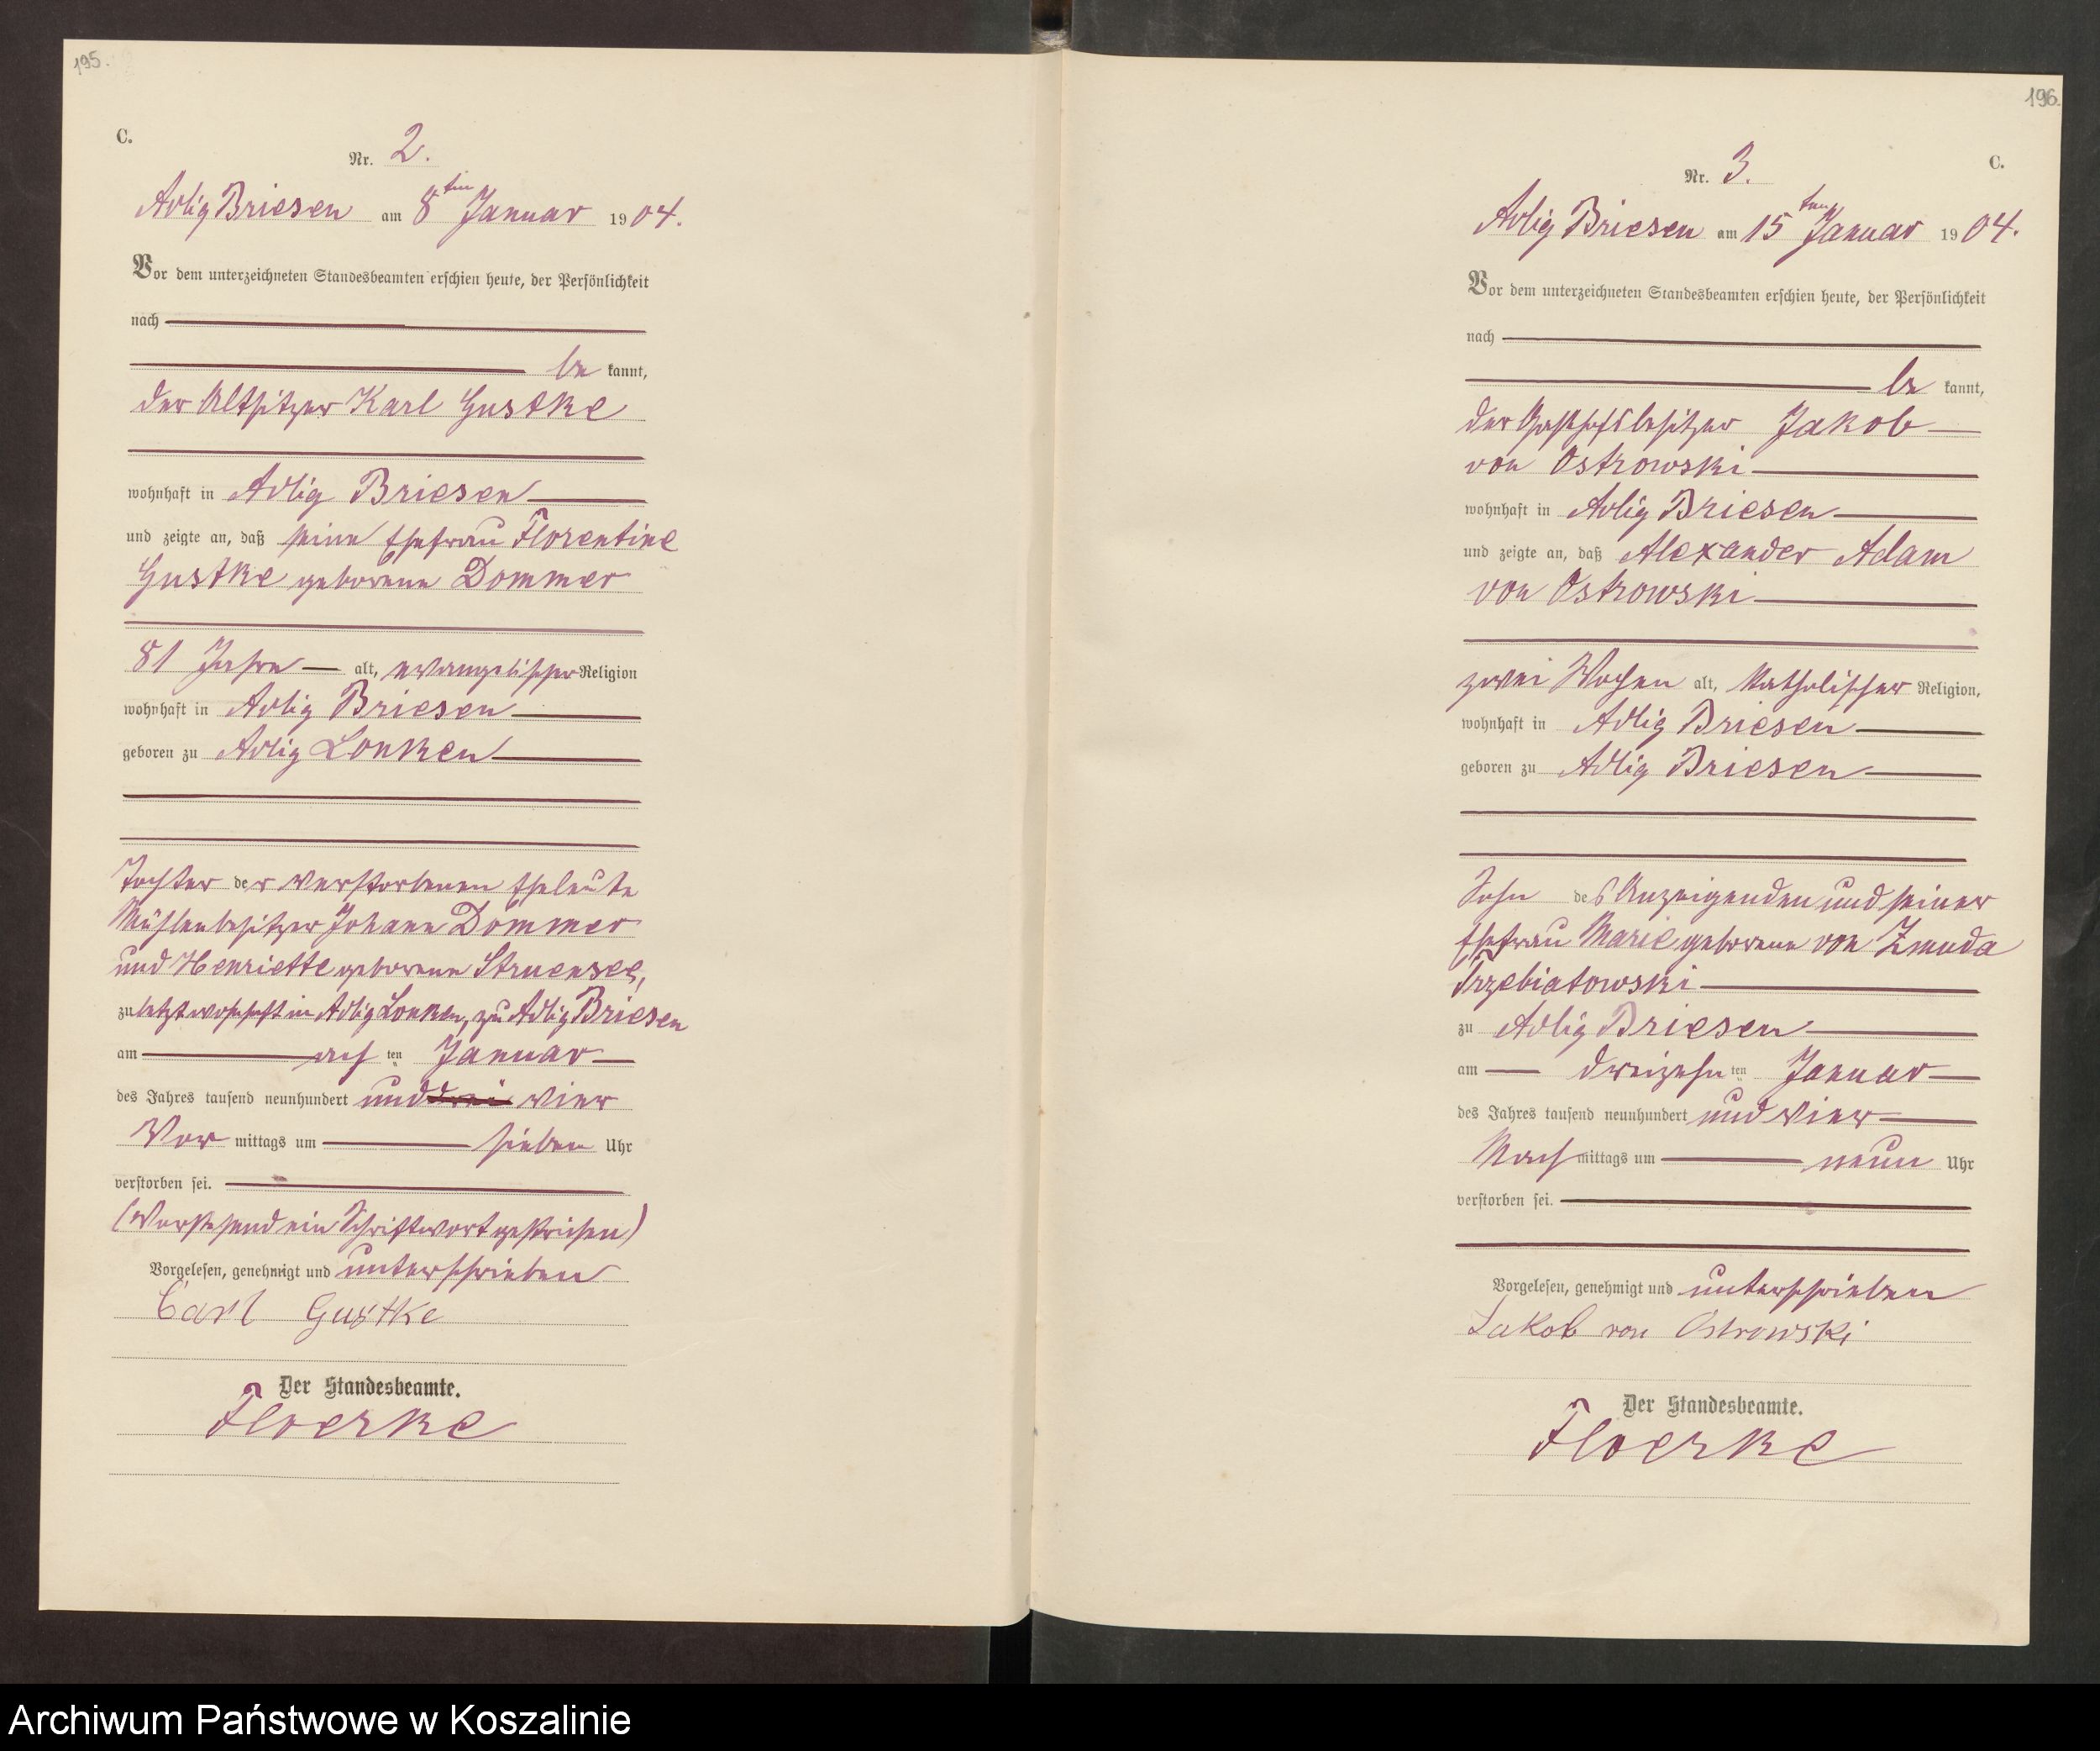 195.
C.
Nr. 2.
Adlig Briesen am 8ten Januar 1904.
Vor dem unterzeichneten Standesbeamten erschien heute, der Persönlichkeit
nach
be kannt,
der Altsitzer Karl Gustke
wohnhaft in Adlig Briesen
und zeigte an, daß seine Ehefrau Florentine
Gustke geborene Dommer
81 Jahre alt, evangelischer Religion
wohnhaft in Adlig Briesen
geboren zu Adlig Lonken
Tochter der verstorbenen Eheleute
Mühlenbesitzer Johann Dommer
und Henriette geborene Struensee,
zuletzt wohnhaft in Adlig Lonken, zu Adlig Briesen
am acht ten Januar
des Jahres tausend neunhundert und drei vier
Vor mittags um sieben Uhr
verstorben sei.
(Vorstehend ein Schriftwort gestrichen)
Vorgelesen, genehmigt und unterschrieben
Carl Gustke
Der Standesbeamte.
Floerke
196.
C.
Nr. 3.
Adlig Briesen am 15ten Januar 1904.
Vor dem unterzeichneten Standesbeamten erschien heute, der Persönlichkeit
nach
be kannt,
der Gasthofsbesitzer Jakob
von Ostrowski
wohnhaft in Adlig Briesen
und zeigte an, daß Alexander Adam
von Ostrowski
zwei Wochen alt, katholischer Religion,
wohnhaft in Adlig Briesen
geboren zu Adlig Briesen
Sohn des Anzeigenden und seiner
Ehefrau Marie geborene von Zmuda
Trzebiatowski
zu Adlig Briesen
am dreizehn ten Januar
des Jahres tausend neunhundert und vier
Nach mittags um neun Uhr
verstorben sei.
Vorgelesen, genehmigt und unterschrieben
Jakob von Ostrowski
Der Standesbeamte.
Floerke
Archiwum Państwowe w Koszalinie